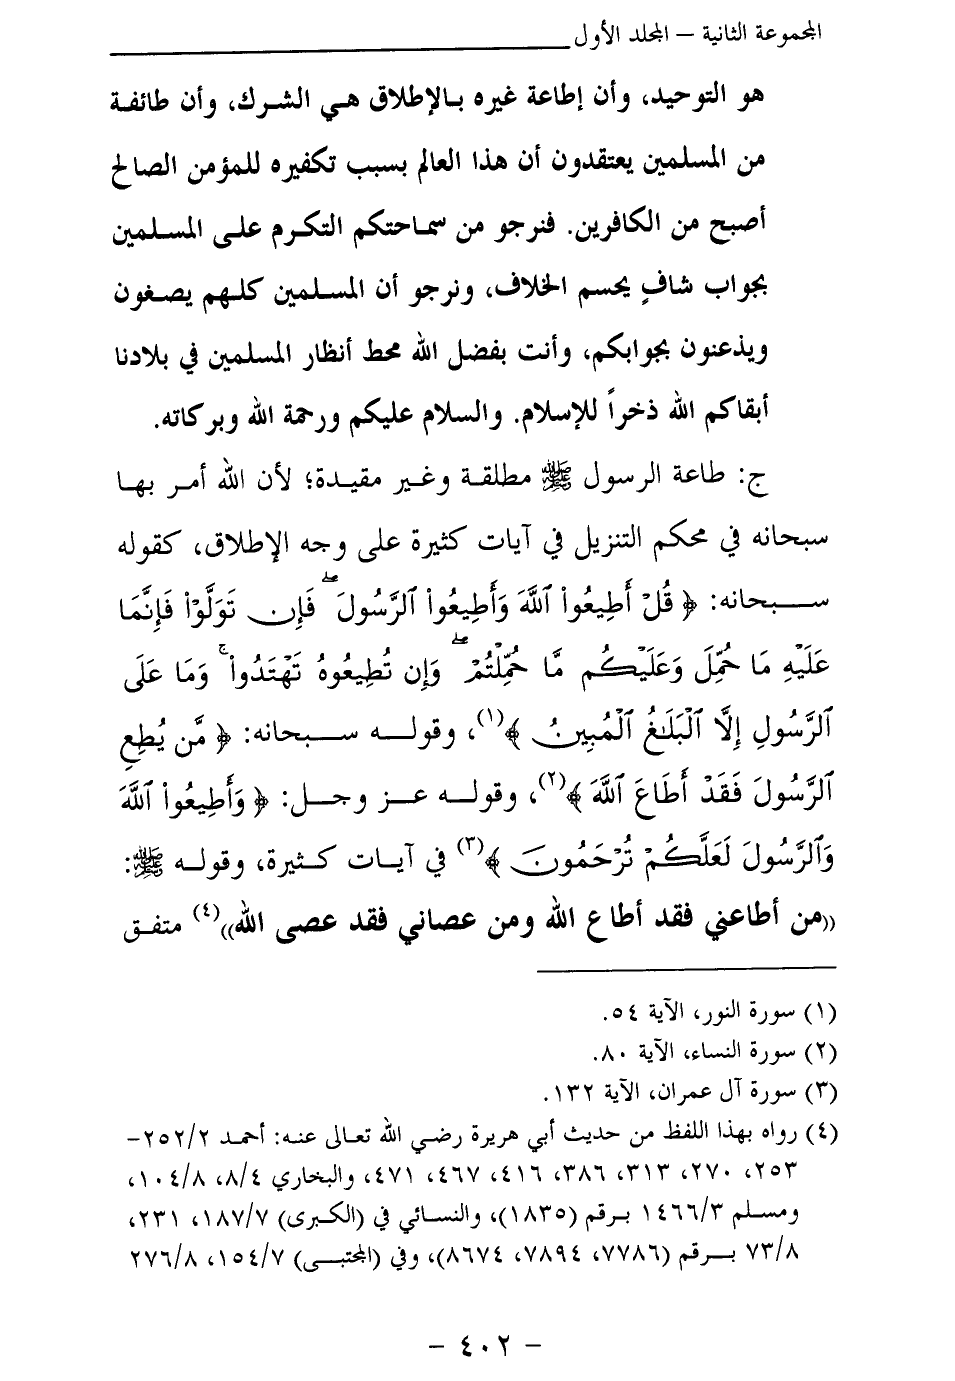 المجموعة الثانية – المجلد الأول
هو التوحيد، وأن إطاعة غيره بالإطلاق هي الشرك، وأن طائفة
من المسلمين يعتقدون أن هذا العالم بسبب تكفيره للمؤمن الصالح
أصبح من الكافرين. فنرجو من سماحتكم التكرم على المسلمين
بجواب شافٍ يحسم الخلاف، ونرجو أن المسلمين كلهم يصغون
ويذعنون بجوابكم، وأنت بفضل الله محط أنظار المسلمين في بلادنا
أبقاكم الله ذخراً للإسلام. والسلام عليكم ورحمة الله وبركاته.
ج: طاعة الرسول ﷺ مطلقة وغير مقيدة؛ لأن الله أمر بها
سبحانه في محكم التنزيل في آيات كثيرة على وجه الإطلاق، كقوله
سبحانه: ﴿ قُلْ أَطِيعُوا۟ ٱللَّهَ وَأَطِيعُوا۟ ٱلرَّسُولَ ۖ فَإِن تَوَلَّوْا۟ فَإِنَّمَا
عَلَيْهِ مَا حُمِّلَ وَعَلَيْكُم مَّا حُمِّلْتُمْ ۖ وَإِن تُطِيعُوهُ تَهْتَدُوا۟ ۚ وَمَا عَلَى
ٱلرَّسُولِ إِلَّا ٱلْبَلَـٰغُ ٱلْمُبِينُ ﴾(١)، وقوله سبحانه: ﴿ مَّن يُطِعِ
ٱلرَّسُولَ فَقَدْ أَطَاعَ ٱللَّهَ ﴾(٢)، وقوله عز وجل: ﴿ وَأَطِيعُوا۟ ٱللَّهَ
وَٱلرَّسُولَ لَعَلَّكُمْ تُرْحَمُونَ ﴾(٣) في آيات كثيرة، وقوله ﷺ:
((من أطاعني فقد أطاع الله ومن عصاني فقد عصى الله))(٤) متفق
(١) سورة النور، الآية ٥٤.
(٢) سورة النساء، الآية ٨٠.
(٣) سورة آل عمران، الآية ١٣٢.
(٤) رواه بهذا اللفظ من حديث أبي هريرة رضي الله تعالى عنه: أحمد ٢/٢٥٢-
٢٥٣، ٢٧٠، ٣١٣، ٣٨٦، ٤١٦، ٤٦٧، ٤٧١، والبخاري ٨/٤، ١٠٤/٨،
ومسلم ١٤٦٦/٣ برقم (١٨٣٥)، والنسائي في (الكبرى) ١٨٧/٧، ٢٣١،
٧٣/٨ برقم (٧٧٨٦، ٧٨٩٤، ٨٦٧٤)، وفي (المجتبى) ١٥٤/٧، ٢٧٦/٨
- ٤٠٢ -